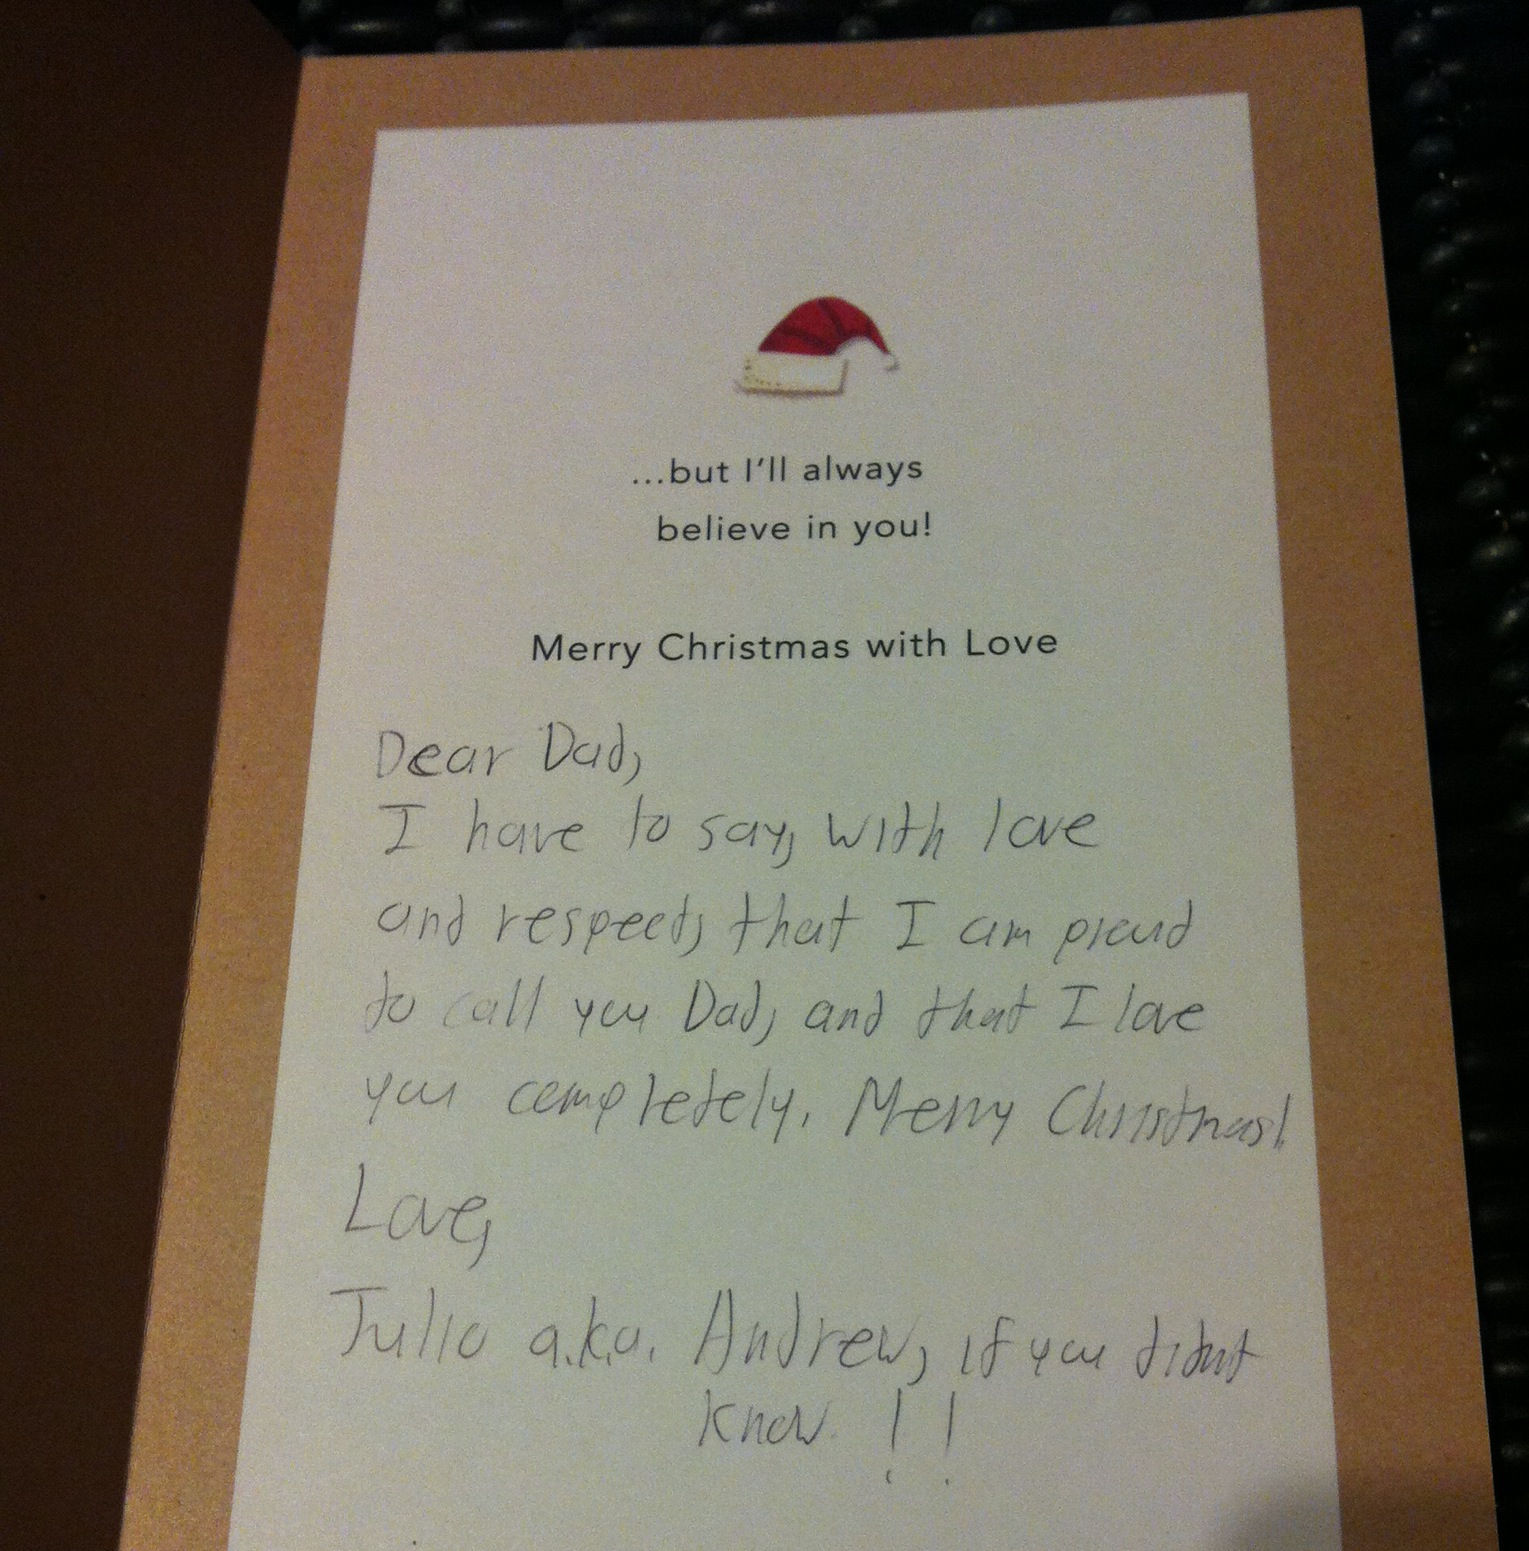 ...but I'll always
believe in you!
Merry Christmas with Love
Dear Dad,
I have to say, with love
and respect, that I am proud
to call you Dad, and that I love
you completely. Merry Christmas!
Love,
Julio a.k.a. Andrew, if you didnt
know !!